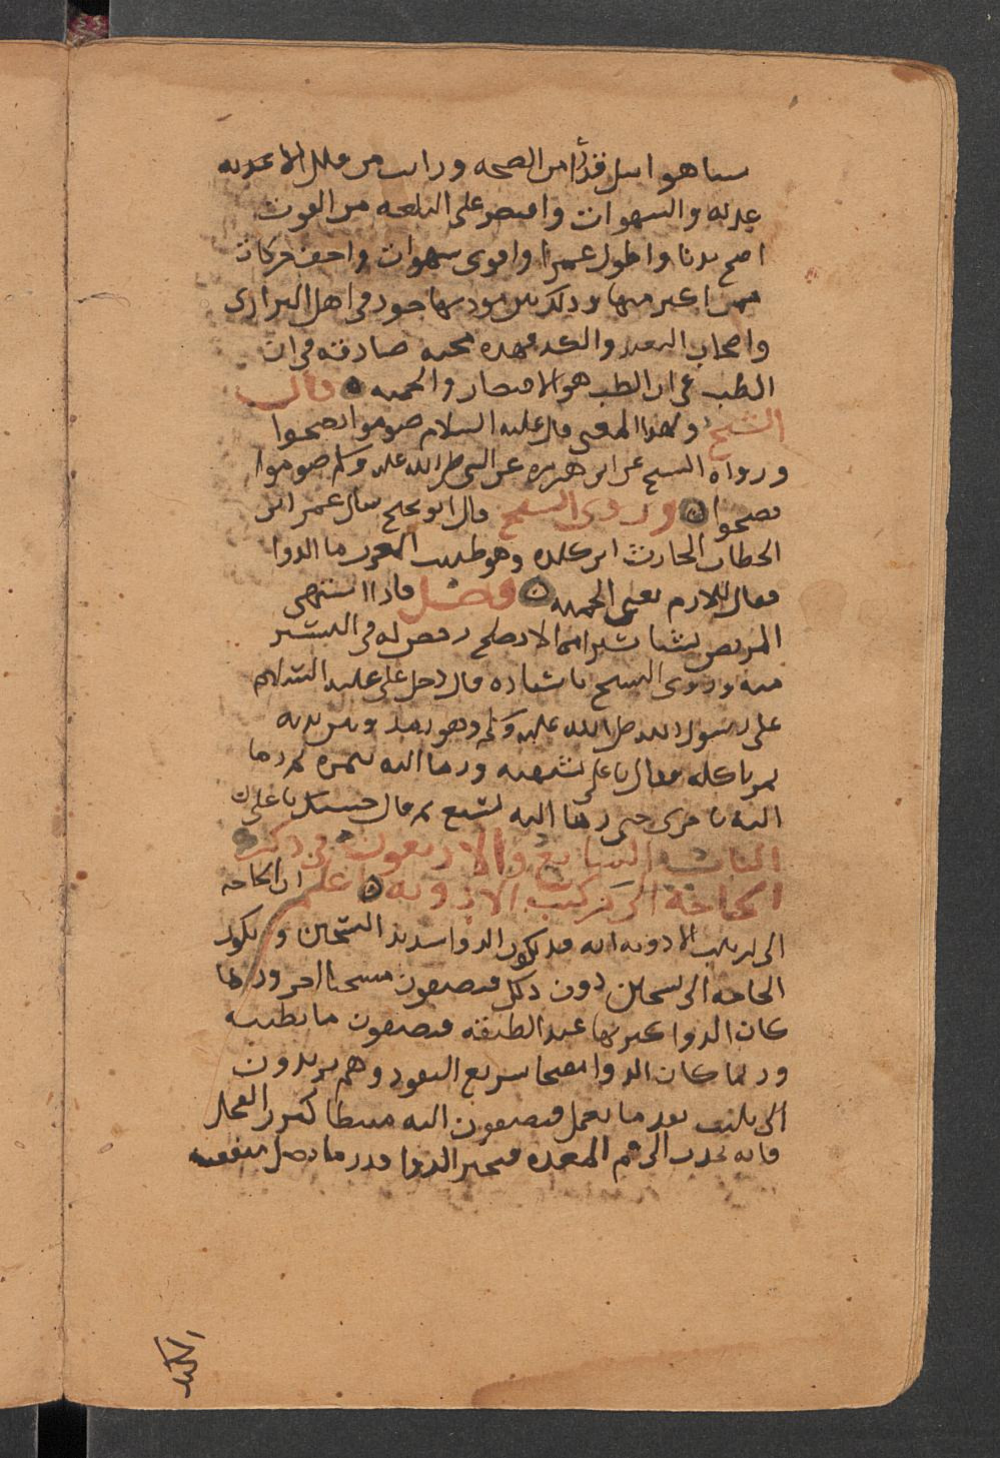 شيا هو اقل قدرا من الصحه ورايت من قلل الاغذيه
غذيه والشهوات واقتصر على البلغه من القوت
اصح بدنا واطول عمرا واقوى شهوات واخف حركات
من اكبر منها وذلك بين موديها جود في اهل البراري
واصحاب البعد والكد فهذه محنه صادقه في ان
الطب على ان الطب هو الاقتصار والحميه ه قال
الشيخ ولهذا المعنى قال عليه السلام صوموا تصحوا
ورواه الشيخ عن ابي هريره عن النبي صلى الله عليه وسلم صوموا
تصحوا ه وروى الشيخ قال ابو نجيح سال عمر ابن
الخطاب الحارث ابن كلده وهو طبيب العرب ما الدوا
فقال اللازم يعني الحميه ه فصل فاذا اشتهى
المريض شيا شيرا مما لا يصلح رخص له في اليسير
منه وروى الشيخ باسناده قال دخل علي عليه السلام
على رسول الله صلى الله عليه وسلم وهو رمد وبين يديه
تمر ياكله فقال يا علي تشتهيه ورما اليه بتمره ثم رما
اليه باخرى حتى رما اليه سبع ثم قال حسبك يا علي ه
الباب السابع والاربعون في ذكر
الحاجة الى تركيب الادويه ه اعلم ان الحاجه
الى تركيب الادويه انه قد يكون الدوا شديد التسخين وتكون
الحاجه الى تسخين دون ذلك فيضيفون مسخنا اخر وربما
كان الدوا كريها عند الطبيعه فيضيفون ما يطيبه
وربما كان الدوا مصحا سريع النفود وهم يريدون
ان يلبث بعد ما يعمل فيضيفون اليه مثبطا كبزر الفجل
فانه يجذب الى فم المعده فيتحير الدوا قدر ما تصل منفعته
الكبد